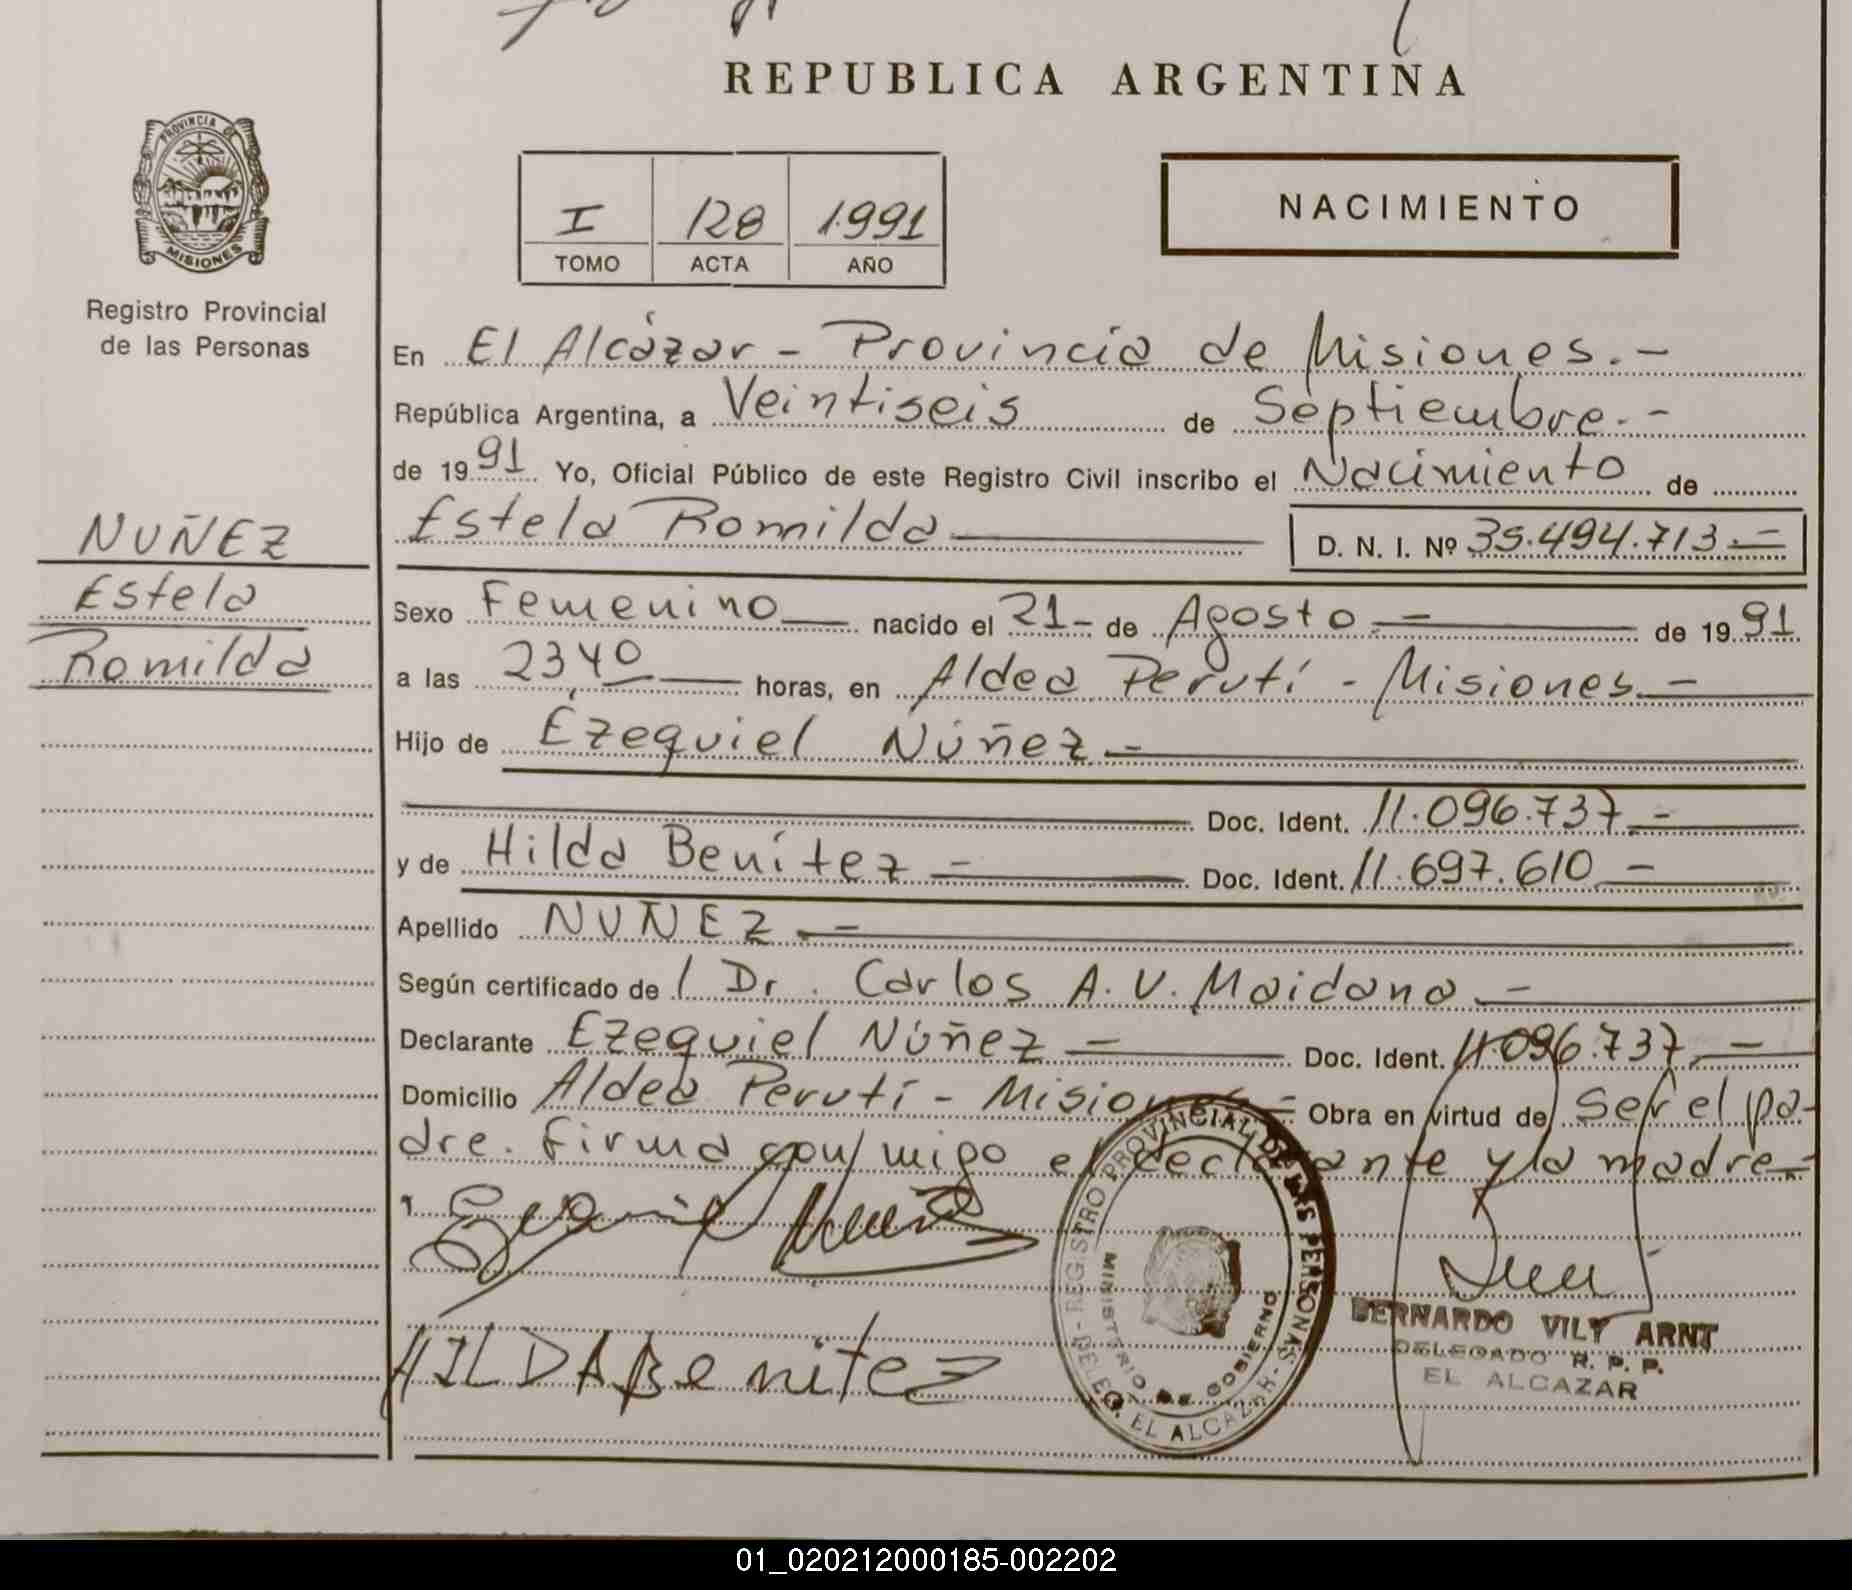 REPUBLICA ARGENTINA
PROVINCIA DE
MISIONES
Registro Provincial
de las Personas
I 128 1.991
TOMO ACTA AÑO
NACIMIENTO
En El Alcázar - Provincia de Misiones.-
República Argentina, a Veintiseis de Septiembre.-
de 1991. Yo, Oficial Público de este Registro Civil inscribo el Nacimiento de
Estela Romilda
D. N. I. Nº 35.494.713.-
NUÑEZ
Estela
Romilda
Sexo Femenino nacido el 21- de Agosto.- de 1991
a las 23,40 horas, en Aldea Perutí - Misiones.-
Hijo de Ezequiel Núñez.-
Doc. Ident. 11.096.737.-
y de Hilda Benítez - Doc. Ident. 11.697.610.-
Apellido NUÑEZ.-
Según certificado de / Dr. Carlos A. V. Maidana.-
Declarante Ezequiel Núñez - Doc. Ident. 11.096.737.-
Domicilio Aldea Perutí - Misiones.- Obra en virtud de Ser el pa-
dre. Firma conmigo el declarante y la madre.-
HILDA Benitez
REGISTRO PROVINCIAL DE LAS PERSONAS
MINISTERIO DE GOBIERNO
DELEG. EL ALCAZAR
BERNARDO VILY ARNT
DELEGADO R. P. P.
EL ALCAZAR
01_020212000185-002202